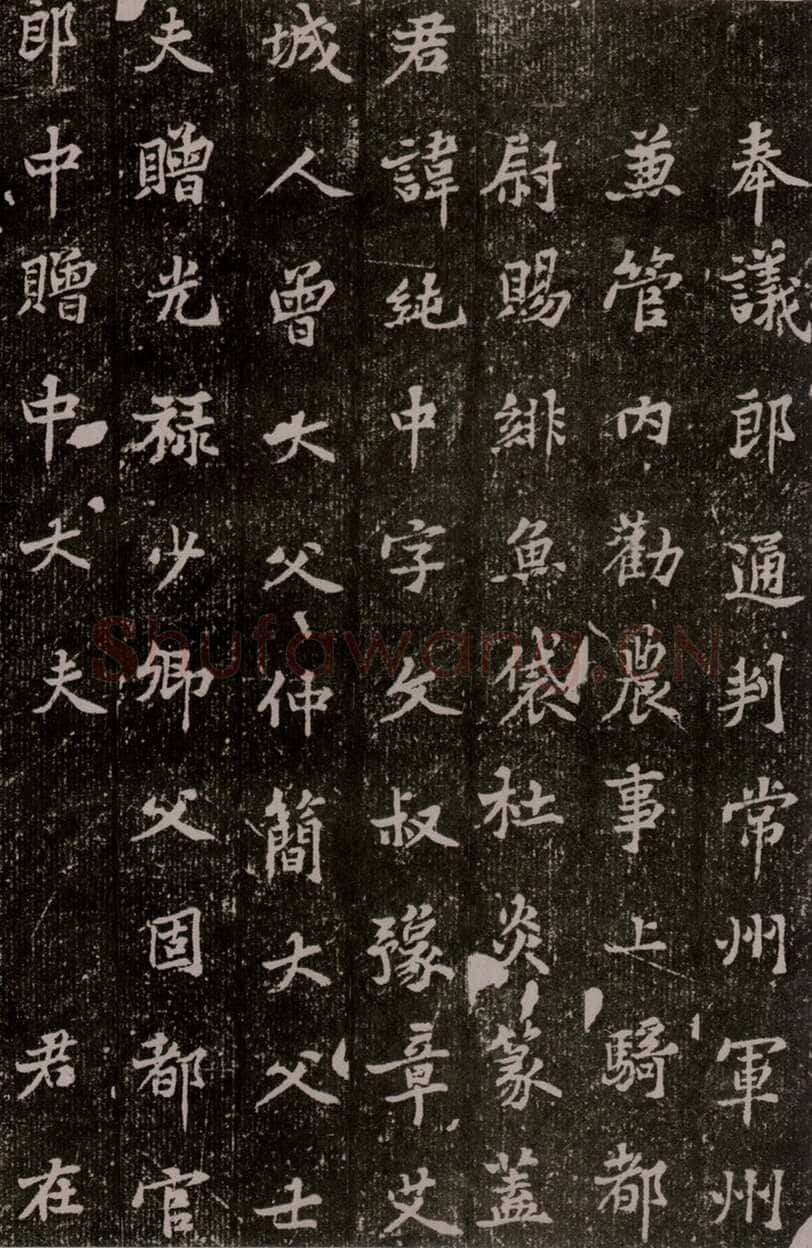 奉議郎通判常州軍州
兼管内勸農事上騎都
尉賜緋魚袋杜炎篆蓋
君諱純中字文叔豫章艾
城人曾大父仲簡大父士
夫贈光禄少卿父固都官
郎中贈中大夫　君在
Shufawang.CN